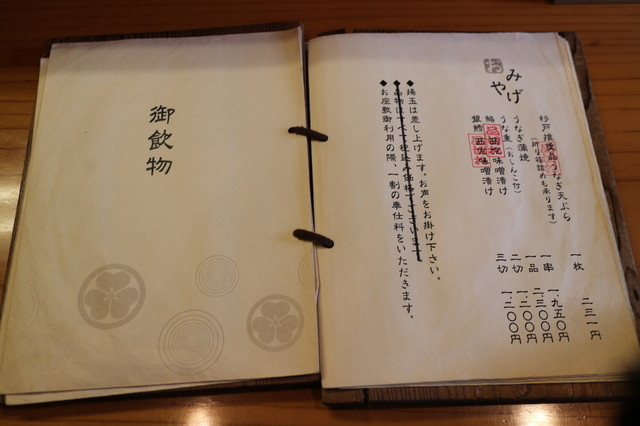 御飲物
おみやげ
杉戸推奨品うなぎ天ぷら 一枚 二三一円
(折り箱詰めも承ります)
うなぎ蒲焼 一串 一、九五〇円
うな重(おしんこ付) 一品 二、三〇〇円
鮭西京味噌漬け 二切 一、二〇〇円
銀鱈西京味噌漬け 三切 一、二〇〇円
◆揚玉は差し上げます。お声をお掛け下さい。
◆品物はすべて税込み価格でございます。
◆お座敷御利用の際、一割の奉仕料をいただきます。